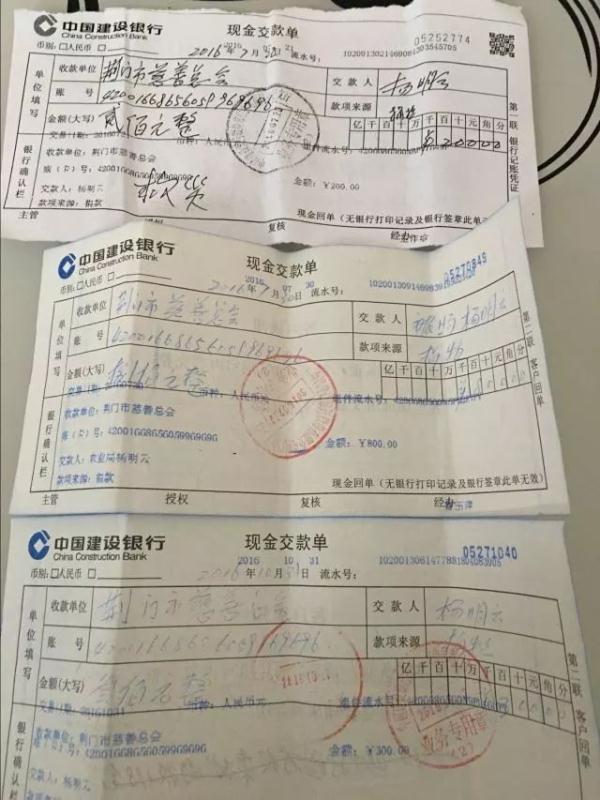 中国建设银行
China Construction Bank
现金交款单
05252774
币别:□人民币 □
2016年7月
流水号:
单位填写
收款单位
荆门市慈善总会
交款人
杨明云
账号
42001668656059969696
款项来源
金额(大写)
贰佰元整
亿千百十万千百十元角分
第二联 银行记账凭证
银行确认栏
收款单位:荆门市慈善总会
账(卡)号:
交款人:杨明云
款项来源:捐款
金额:¥200.00
现金回单(无银行打印记录及银行签章此单无效)
主管
授权
复核
经办
中国建设银行
China Construction Bank
现金交款单
05270849
币别:□人民币 □
2016年7月30
流水号:
单位填写
收款单位
荆门市慈善总会
交款人
杨明云
账号
42001668656059969696
款项来源
金额(大写)
亿千百十万千百十元角分
第二联 客户回单
银行确认栏
币种:人民币元
收款单位:荆门市慈善总会
账(卡)号:42001668656059969696
交款人:农业局杨明云
款项来源:捐款
金额:¥800.00
现金回单(无银行打印记录及银行签章此单无效)
主管
授权
复核
经办
中国建设银行
China Construction Bank
现金交款单
05271040
币别:□人民币 □
2016年10月31日
流水号:
单位填写
收款单位
荆门市慈善总会
交款人
杨明云
账号
42001668656059969696
款项来源
金额(大写)
叁佰元整
亿千百十万千百十元角分
第二联 客户回单
银行确认栏
币种:人民币元
收款单位:荆门市慈善总会
账(卡)号:42001668656059969696
交款人:杨明云
款项来源:捐款
金额:¥300.00
业务专用章
(2)